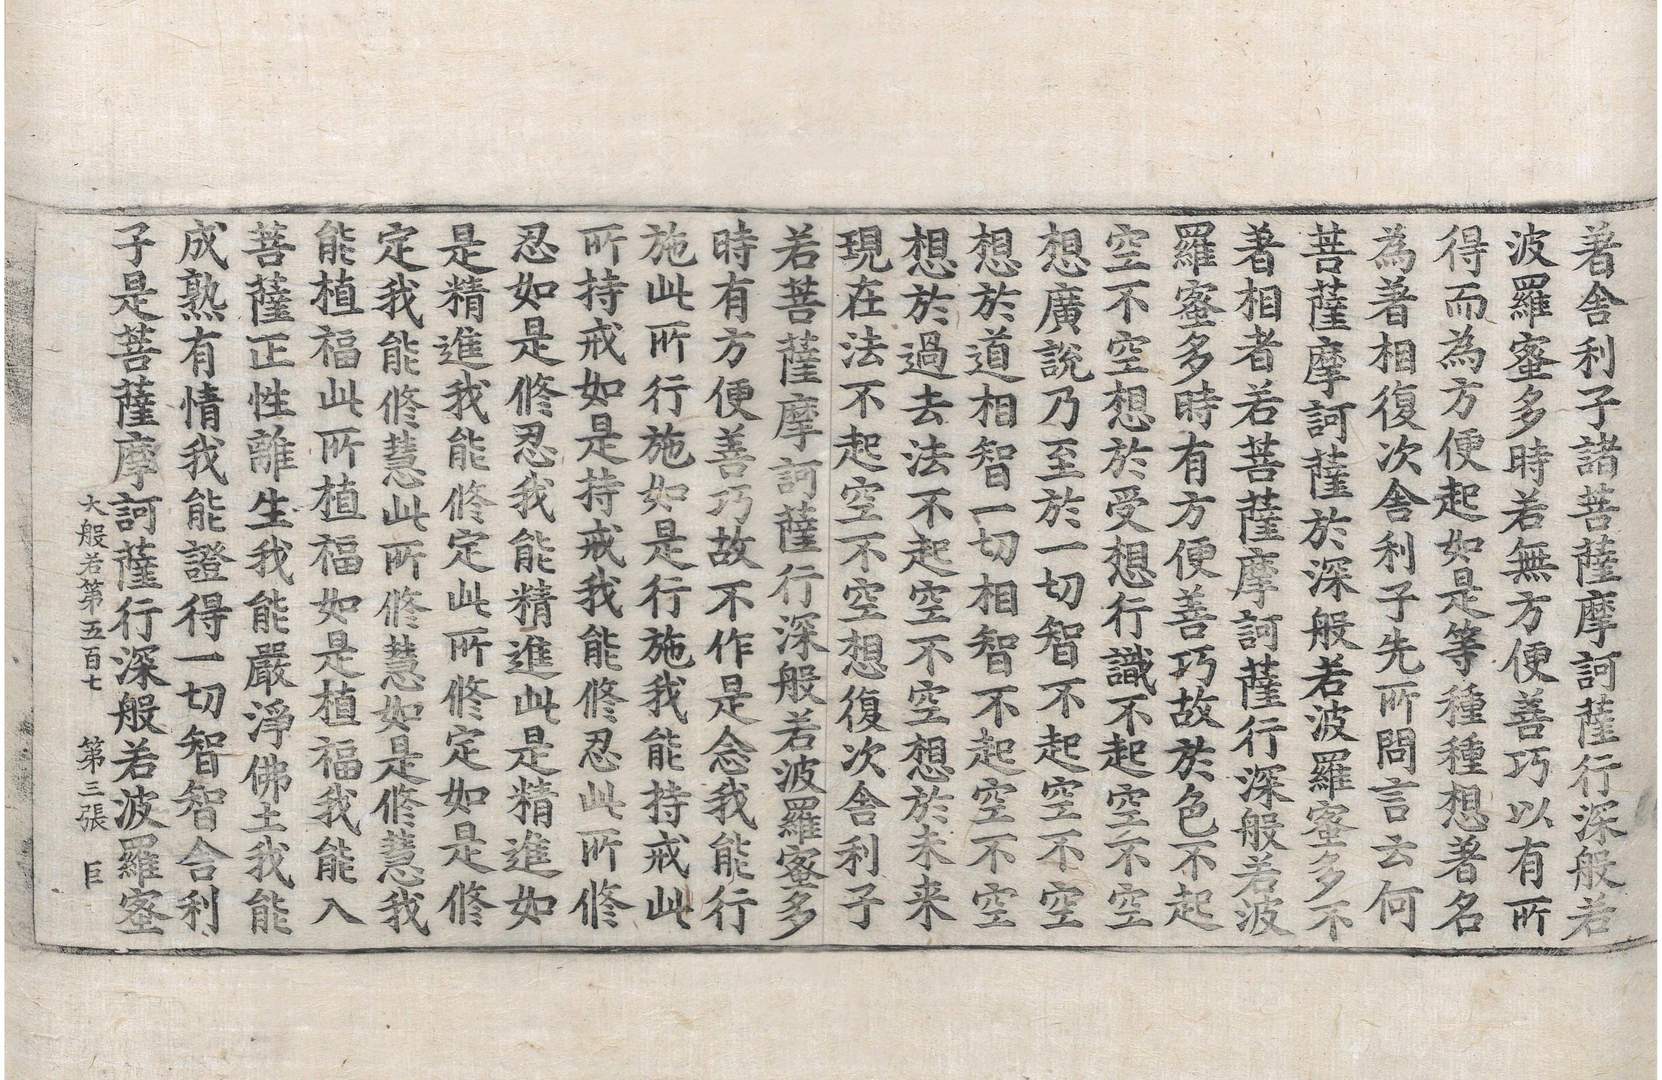 著舍利子諸菩薩摩訶薩行深般若
波羅蜜多時若無方便善巧以有所
得而為方便起如是等種種想著名
為著相復次舍利子先所問言云何
菩薩摩訶薩於深般若波羅蜜多不
著相者若菩薩摩訶薩行深般若波
羅蜜多時有方便善巧故於色不起
空不空想於受想行識不起空不空
想廣說乃至於一切智不起空不空
想於道相智一切相智不起空不空
想於過去法不起空不空想於未来
現在法不起空不空想復次舍利子
若菩薩摩訶薩行深般若波羅蜜多
時有方便善巧故不作是念我能行
施此所行施如是行施我能持戒此
所持戒如是持戒我能修忍此所修
忍如是修忍我能精進此是精進如
是精進我能修定此所修定如是修
定我能修慧此所修慧如是修慧我
能植福此所植福如是植福我能入
菩薩正性離生我能嚴淨佛土我能
成熟有情我能證得一切智智舍利
子是菩薩摩訶薩行深般若波羅蜜
大般若第五百七 第三張 巨